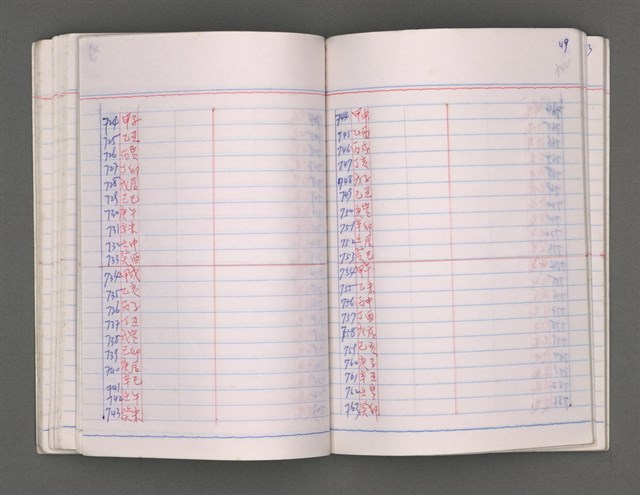 724 甲子
725 乙丑
726 丙寅
727 丁卯
728 戊辰
729 己巳
730 庚午
731 辛未
732 壬申
733 癸酉
734 甲戌
735 乙亥
736 丙子
737 丁丑
738 戊寅
739 己卯
740 庚辰
741 辛巳
742 壬午
743 癸未
49
744 甲申
745 乙酉
746 丙戌
747 丁亥
748 戊子
749 己丑
750 庚寅
751 辛卯
752 壬辰
753 癸巳
754 甲午
755 乙未
756 丙申
757 丁酉
758 戊戌
759 己亥
760 庚子
761 辛丑
762 壬寅
763 癸卯
3